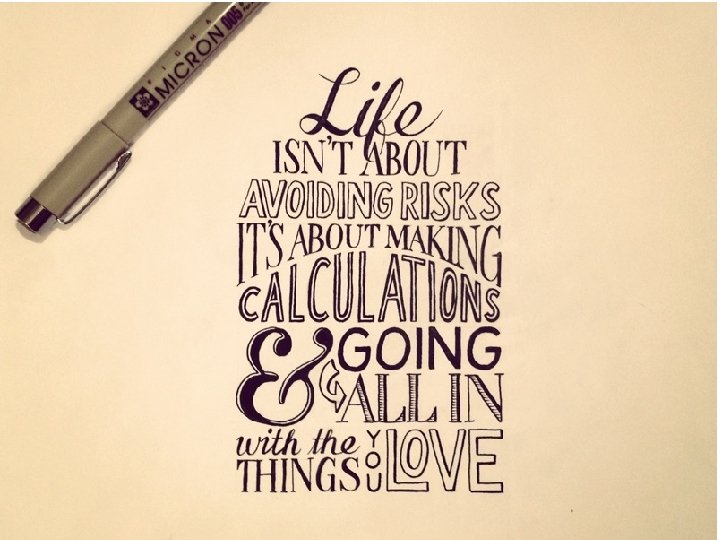 SIGMA
MICRON 005
Life
ISN'T ABOUT
AVOIDING RISKS
IT'S ABOUT MAKING
CALCULATIONS
& GOING
ALL IN
with the
THINGS YOU LOVE